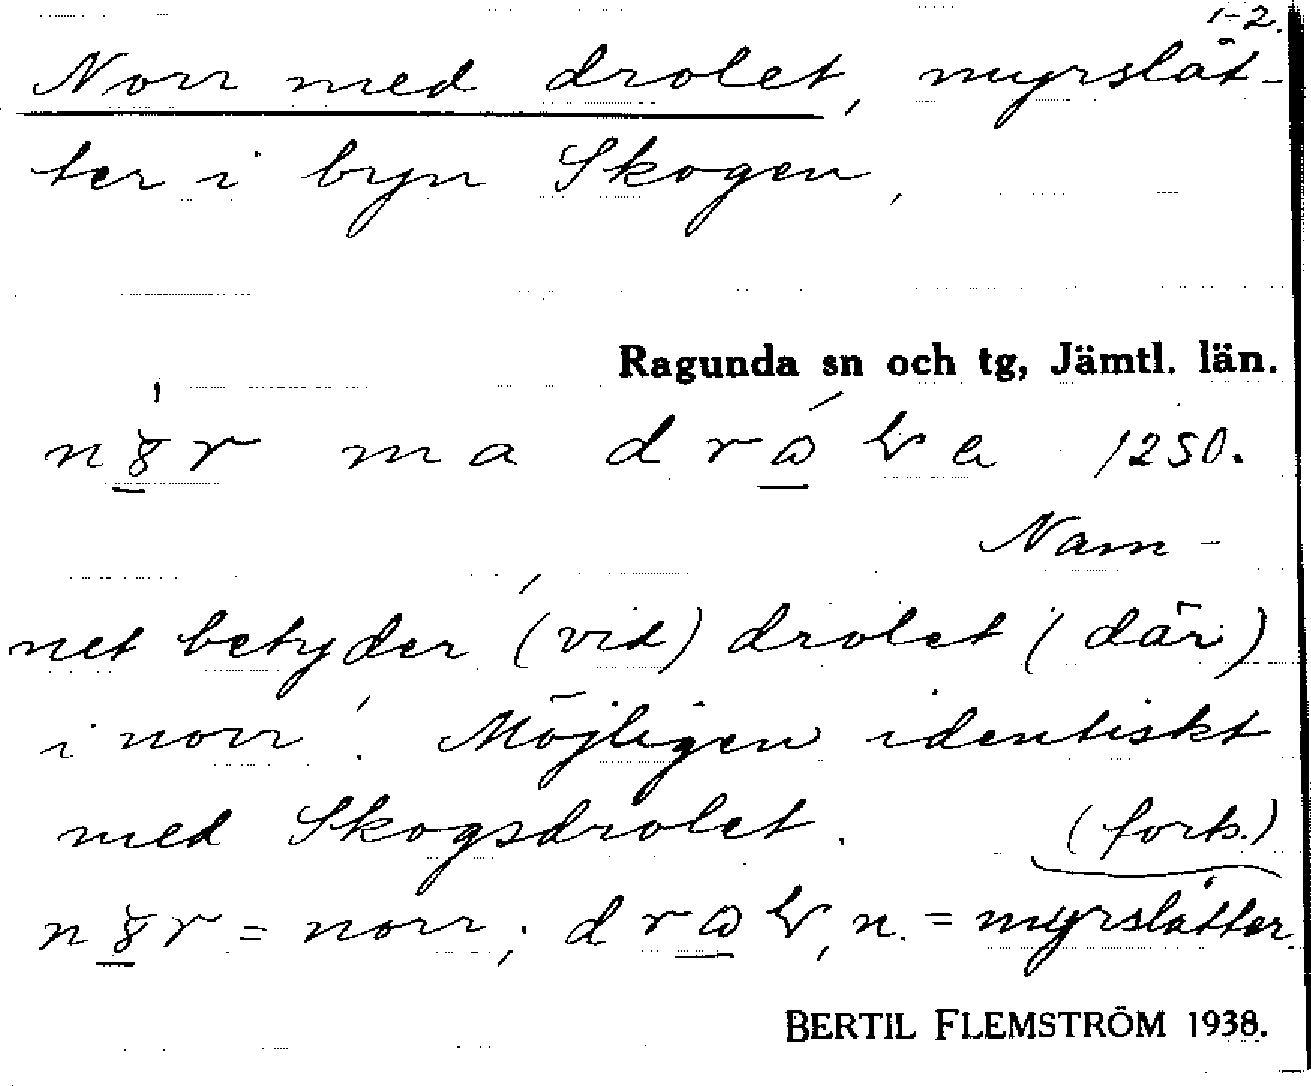 1-2.
Norr med drolet, myrslåt-
ter i byn Skogen,
Ragunda sn och tg, Jämtl. län.
ma 1250.
Nam-
net betyder '(vid) drolet (där)
i norr'. Möjligen identiskt
med Skogsdrolet. (forts.)
= norr; n. = myrslåtter.
BERTIL FLEMSTRÖM 1938.